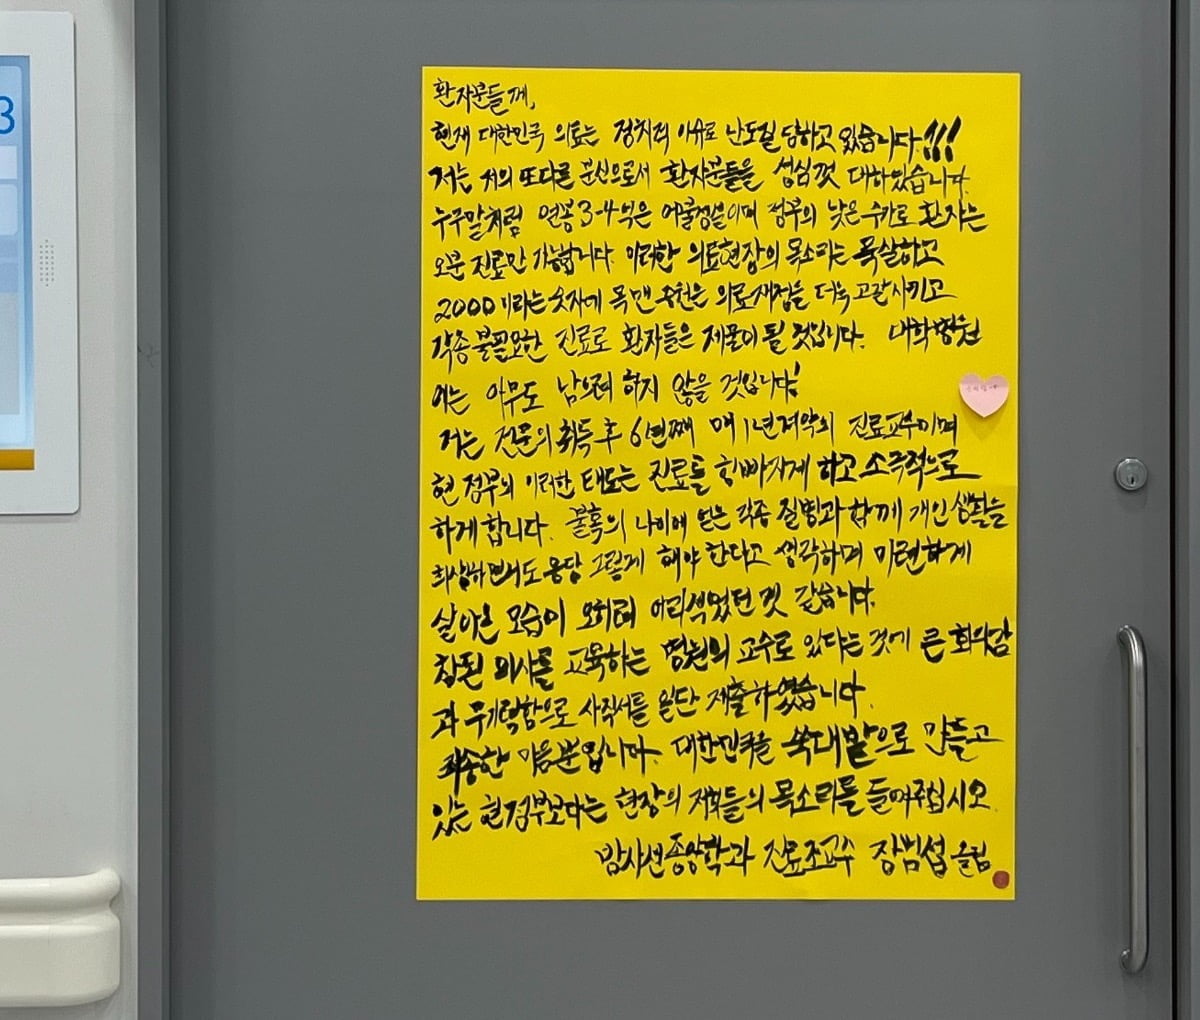 환자분들께,
현재 대한민국 의료는 정치적 이유로 난도질 당하고 있습니다.!!!
저는 저의 또다른 분신으로서 환자분들을 성심껏 대하였습니다.
누구말처럼 연봉 3-4억은 어불성설이며 정부의 낮은 수가로 환자는
오분 진료만 가능합니다. 이러한 의료현장의 목소리는 묵살하고
2000이라는 숫자에 목맨 증원은 의료재정을 더욱 고갈시키고
각종 불필요한 진료로 환자들은 제물이 될 것입니다. 대학병원
에는 아무도 남으려 하지 않을 것입니다!
저는 전문의 취득 후 6년째 매 1년 계약의 진료교수이며
현 정부의 이러한 태도는 진료를 힘빠지게 하고 소극적으로
하게 합니다. 불혹의 나이에 얻은 각종 질병과 함께 개인 생활을
희생하면서도 응당 그렇게 해야 한다고 생각하며 미련하게
살아온 모습이 오히려 어리석었던 것 같습니다.
참된 의사를 교육하는 병원의 교수로 있다는 것에 큰 회의감
과 무기력함으로 사직서를 일단 제출하였습니다.
죄송한 마음뿐입니다. 대한민국을 쑥대밭으로 만들고
있는 현 정부보다는 현장의 저희들의 목소리를 들어주십시오.
방사선종양학과 진료조교수 장범섭 올림
3